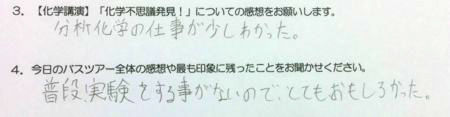 3. 【化学講演】「化学不思議発見!」についての感想をお願いします。
分析化学の仕事が少しわかった。
4. 今日のバスツアー全体の感想や最も印象に残ったことをお聞かせください。
普段、実験をする事がないので、とてもおもしろかった。